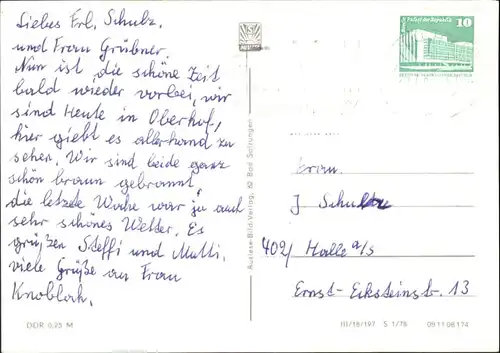 Liebes Frl. Schulz.
und Frau Grübner.
Nun ist die schöne Zeit
bald wieder vorbei, wir
sind Heute in Oberhof,
hier giebt es allerhand zu
sehen. Wir sind beide ganz
schön braun gebrannt,
die letzte Woche war ja auch
sehr schönes Wetter. Es
grüßen Steffi und Mutti.
viele Grüße an Frau
Knobloch.
DDR 0,25 M
Auslese-Bild-Verlag, 62 Bad Salzungen
10
Palast der Republik
Frau
J Schulze
402/ Halle a/S
Ernst-Ecksteinstr. 13
III/18/197 S 1/78 09 11 08 174